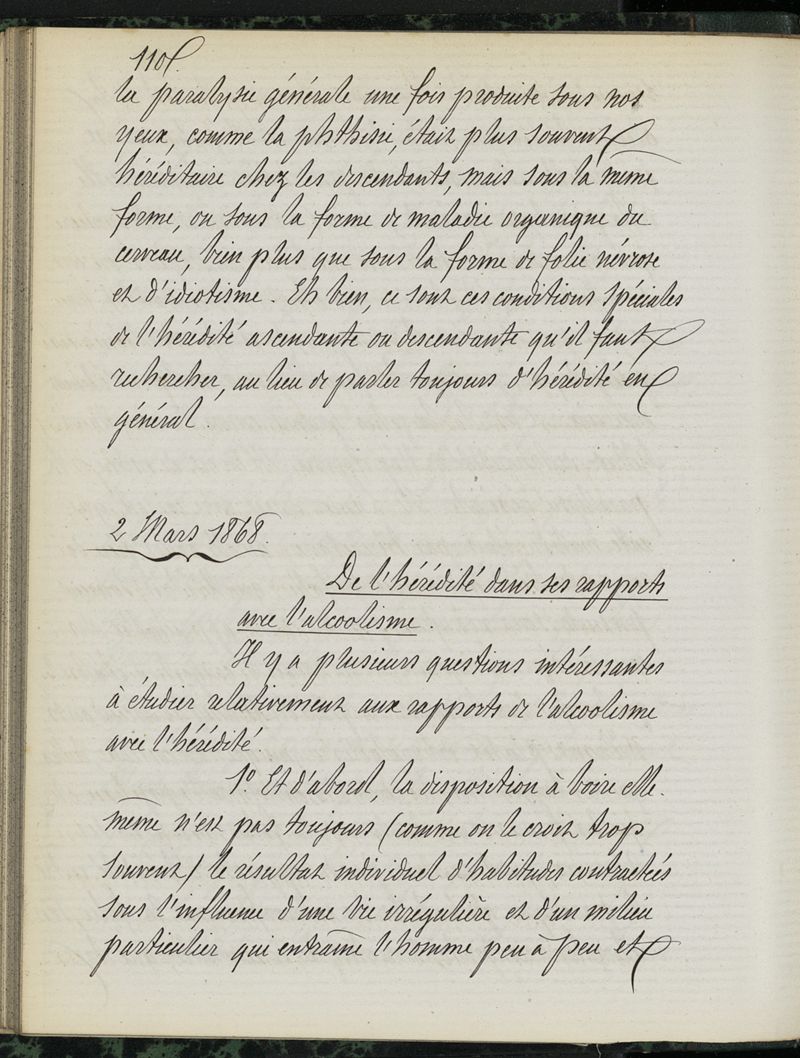 110
la paralysie générale une fois produite sous nos
yeux, comme la phthisie, était plus souvent
héréditaire chez les descendants, mais sous la même
forme, ou sous la forme de maladie organique du
cerveau, bien plus que sous la forme de folie névrose
et d'idiotisme. Eh bien, ce sont ces conditions spéciales
de l'hérédité ascendante ou descendante qu'il faut
rechercher, au lieu de parler toujours d'hérédité en
général.
2 Mars 1868.
De l'hérédité dans ses rapports
avec l'alcoolisme.
Il y a plusieurs questions intéressantes
à étudier relativement aux rapports de l'alcoolisme
avec l'hérédité.
1º Et d'abord, la disposition à boire elle-
même n'est pas toujours (comme on le croit trop
souvent) le résultat individuel d'habitudes contractées
sous l'influence d'une vie irrégulière et d'un milieu
particulier qui entraîne l'homme peu à peu et